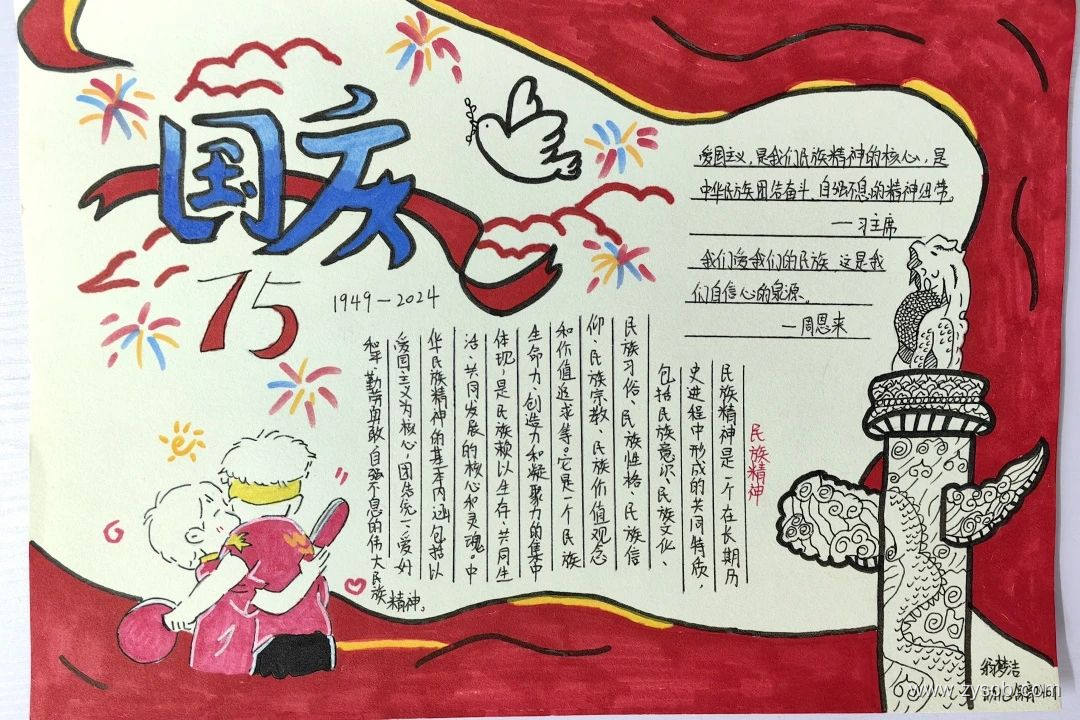 国庆
75
1949—2024
爱国主义,是我们民族精神的核心,是
中华民族团结奋斗、自强不息的精神纽带。
—习主席
我们爱我们的民族 这是我
们自信心的泉源。
—周恩来
民族精神
民族精神是一个在长期历
史进程中形成的共同特质,
包括民族意识、民族文化、
民族习俗、民族性格、民族信
仰、民族宗教、民族价值观念
和价值追求等。它是一个民族
生命力、创造力和凝聚力的集中
体现,是民族赖以生存、共同生
活、共同发展的核心和灵魂。中
华民族精神的基本内涵包括以
爱国主义为核心,团结统一、爱好
和平、勤劳勇敢、自强不息的伟大民族
精神。
翁梦洁
www.zysob.com